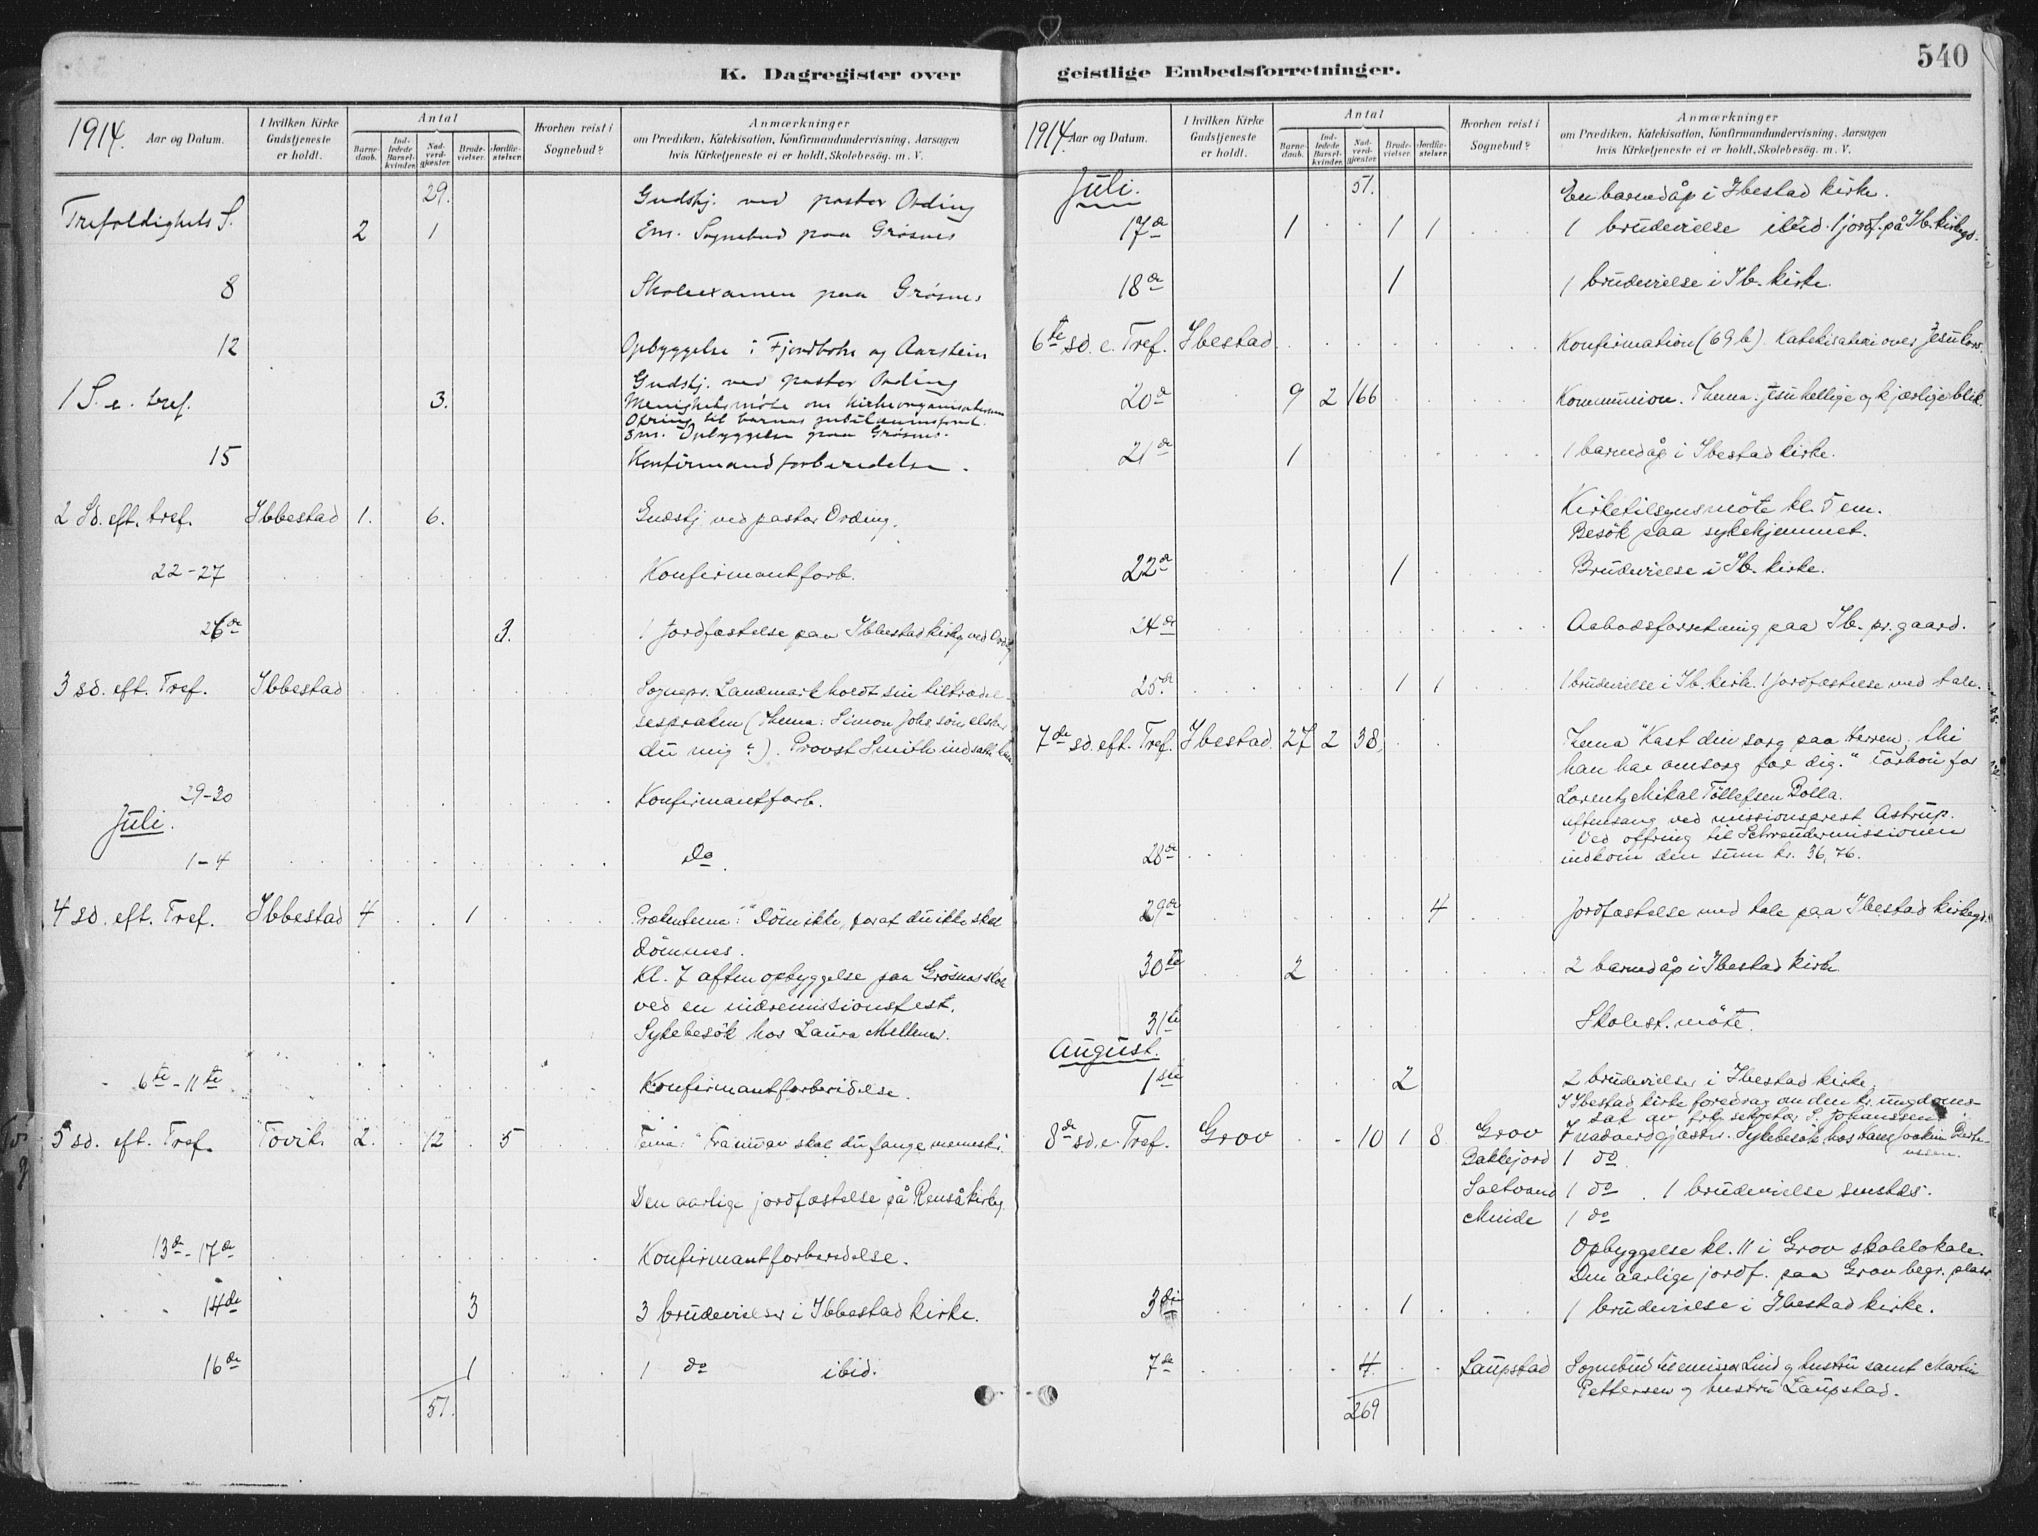 540
K. Dagregister over
geistlige Embedsforretninger.
1914. Aar og Datum.
I hvilken Kirke Gudstjeneste er holdt.
Antal
Barne-daab.
Ind-ledede Barsel-kvinder.
Nad-verd-gjæster.
Brude-vielser.
Jordfæ-stelser.
Hvorhen reist i Sognebud?
Anmærkninger
om Prædiken, Katekisation, Konfirmandundervisning, Aarsagen
hvis Kirketjeneste ei er holdt, Skolebesøg. m. V.
29. Gudstj. ved pastor Ording
Trefoldighets S. 2 1 Em. Sognebud paa Grøsnes
8 Skoleexamen paa Grøsnes
12 Opbyggelse i Fjordbotn og Aarstein
Gudstj. ved pastor Ording
1 S. e. tref. 3. Menighetsmøte om kirkeorganisationen
Ofring til barnas jubilæumsfond.
Em. Opbyggelse paa Grøsnes.
15 Konfirmandforberedelse.
2 Sd. eft. tref. Ibbestad 1. 6. Gudstj. ved pastor Ording.
22-27 Konfirmantforb.
26de 3. 1 Jordfæstelse paa Ibbestad kirkg. ved Ording
3 sd. eft. Tref. Ibbestad Sognepr. Landmark holdt sin tiltrædel-
sespræken (Thema: Simon Johs søn elsker
du mig?). Provst Smith indsatte ham.
29-30 Konfirmantforb.
Juli.
1-4 Do.
4 sd. eft. Tref. Ibbestad 4 1 Prækentema: "Døm ikke, forat du ikke skal
dømmes.
Kl. 7 aften opbyggelse paa Grøsnes skole
ved en indremissionsfest.
Sykebesök hos Laura
6te-11te Konfirmantforberedelse.
5 sd. eft. Tref. Tovik 2. 12 5 Tema: "Fra nu av skal du fange mennesker.
Den aarlige jordfæstelse på Renså kirkeg.
13de-17de Konfirmantforberedelse.
14de 3 3 brudevielser i Ibbestad kirke.
16de 1 1 do ibid.
51.
1914. Aar og Datum.
I hvilken Kirke Gudstjeneste er holdt.
Antal
Barne-daab.
Ind-ledede Barsel-kvinder.
Nad-verd-gjæster.
Brude-vielser.
Jordfæ-stelser.
Hvorhen reist i Sognebud?
Anmærkninger
om Prædiken, Katekisation, Konfirmandundervisning, Aarsagen
hvis Kirketjeneste ei er holdt, Skolebesøg. m. V.
Juli. 51. En barnedåp i Ibestad kirke.
17de 1 1 1 1 brudevielse ibid. 1 jordf. på Ib. kirkegd.
18de 1 1 brudevielse i Ib. kirke.
6te sd. e. Tref. Ibestad Konfirmation (69 b). Katekisation over Jesu kors.
20de 9 2 166 Kommunion. Thema: Jesu hellige og kjærlige blik.
21de 1 1 barnedåp i Ibestad kirke.
Kirketilsynsmöte kl. 5 em.
Besök paa sykehjemmet.
22de 1 Brudevielse i Ib. kirke.
24de Aabodsforretning paa Ib. pr.gaard.
25de 1 1 1 brudevielse i Ib. kirke. 1 jordfæstelse med tale.
7de sd. eft. Tref. Ibestad 27 2 38 Thema "Kast din sorg paa Herren, thi
han har omsorg for dig." Forbön for
Lorentz Mikal Tollefsen Bolla.
Aftensang ved missionsprest Astrup.
Ved offring til Schreudermissionen
28de indkom den sum kr. 36,76.
29de 4 Jordfæstelse med tale paa Ibestad kirkegd.
30te 2 2 barnedåp i Ibestad kirke
31te Skolest. möte.
August.
1ste 2 2 brudevielser i Ibestad kirke.
I Ibestad kirke foredrag om den kr. ungdoms-
sak av frk. sekretær S. Johanssen.
8de sd. e. Tref. Grov 10 1 8 Grov 7 nadverdgjæster. Sykebesök hos Hans Joakim Berte-
ussen.
Bakkejord 1 do
Saltvand 1 do. 1 brudevielse smstds.
Minde 1 do
Opbyggelse kl. 11 i Grov skolelokale.
Den aarlige jordf. paa Grov begr. plass
3die 1 1 brudevielse i Ibestad kirke.
7de 4. Laupstad Sognebud til emissær Lind og hustru samt Martin
Pettersen og hustru Laupstad.
269